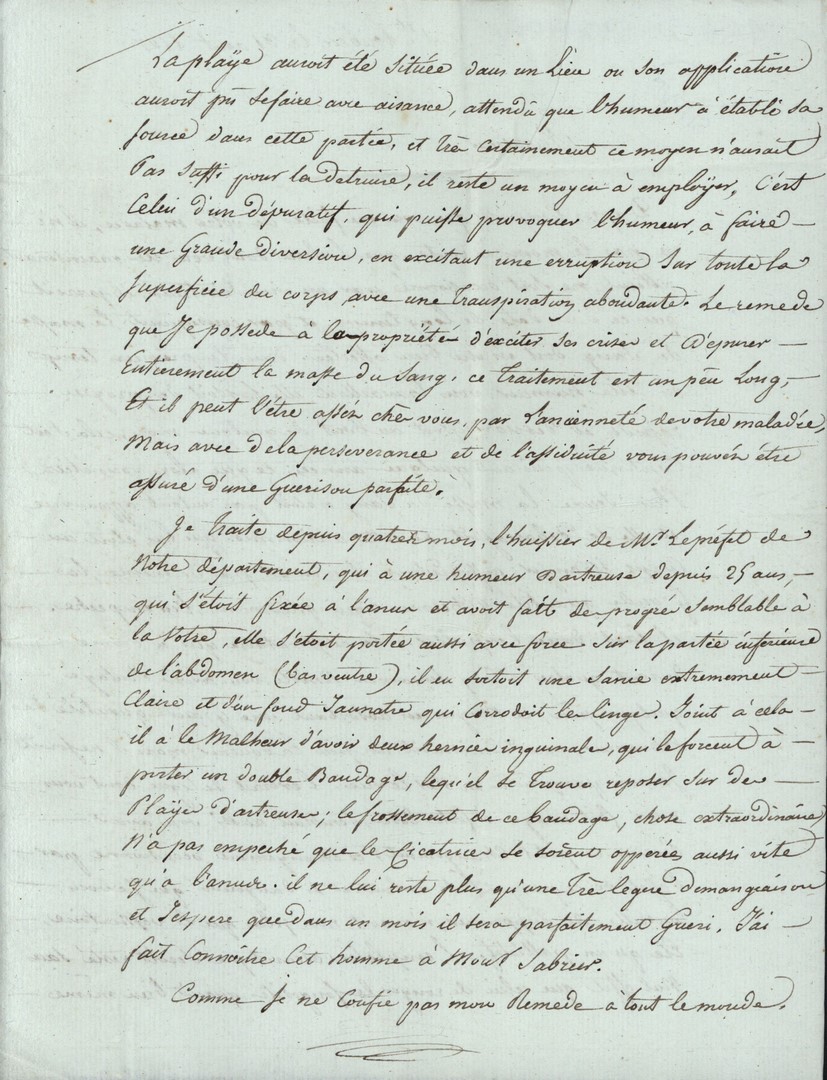 La playe auroit été située dans un Lieu ou son application
auroit pu se faire avec aisance, attendu que l'humeur à établi sa
source dans cette partie, et très certainement ce moyen n'auroit
Pas suffi pour la detruire, il reste un moyen à employer, C'est
Celui d'un dépuratif, qui puisse provoquer l'humeur, à faire —
une Grande diversion, en excitant une erruption sur toute la
superficie du corps avec une transpiration abondante. Le remede
que Je possede à la propriété d'exciter ses crises et d'épurer —
Entierement la masse du Sang, ce traitement est un peu Long, —
Et il peut l'être assés chés vous, par L'ancienneté de votre maladie,
Mais avec de la perseverance et de l'assiduité vous pouvés être
assuré d'une Guerison parfaite.
Je traite depuis quatre mois, l'huissier de Mr Le préfet de
Notre département, qui à une humeur Dartreuse depuis 25 ans, —
qui s'étoit fixée à l'anus et avoit fait de progrés semblable à
la Votre, elle s'étoit portée aussi avec force sur la partie inférieure
de l'abdomen (bas ventre), il en sortoit une sanie extremement
Claire et d'un fond Jaunatre qui Corrodoit le linge. Joint à cela —
il à le Malheur d'avoir deux hernies inguinale, qui le forcent à —
porter un double Bandage, lequel se trouve reposer sur des —
Playes d'artreuses; le frossement de ce bandage, chose extraordinaire
N'a pas empeché que les Cicatrices se soient opperées aussi vite
qu'a l'anus. il ne lui reste plus qu'une très legere demangiaison
et J'espere que dans un mois il sera parfaitement Gueri. J'ai —
fait Connoitre Cet homme à Monr Sabrier.
Comme Je ne Confie pas mon Remede à tout le monde.